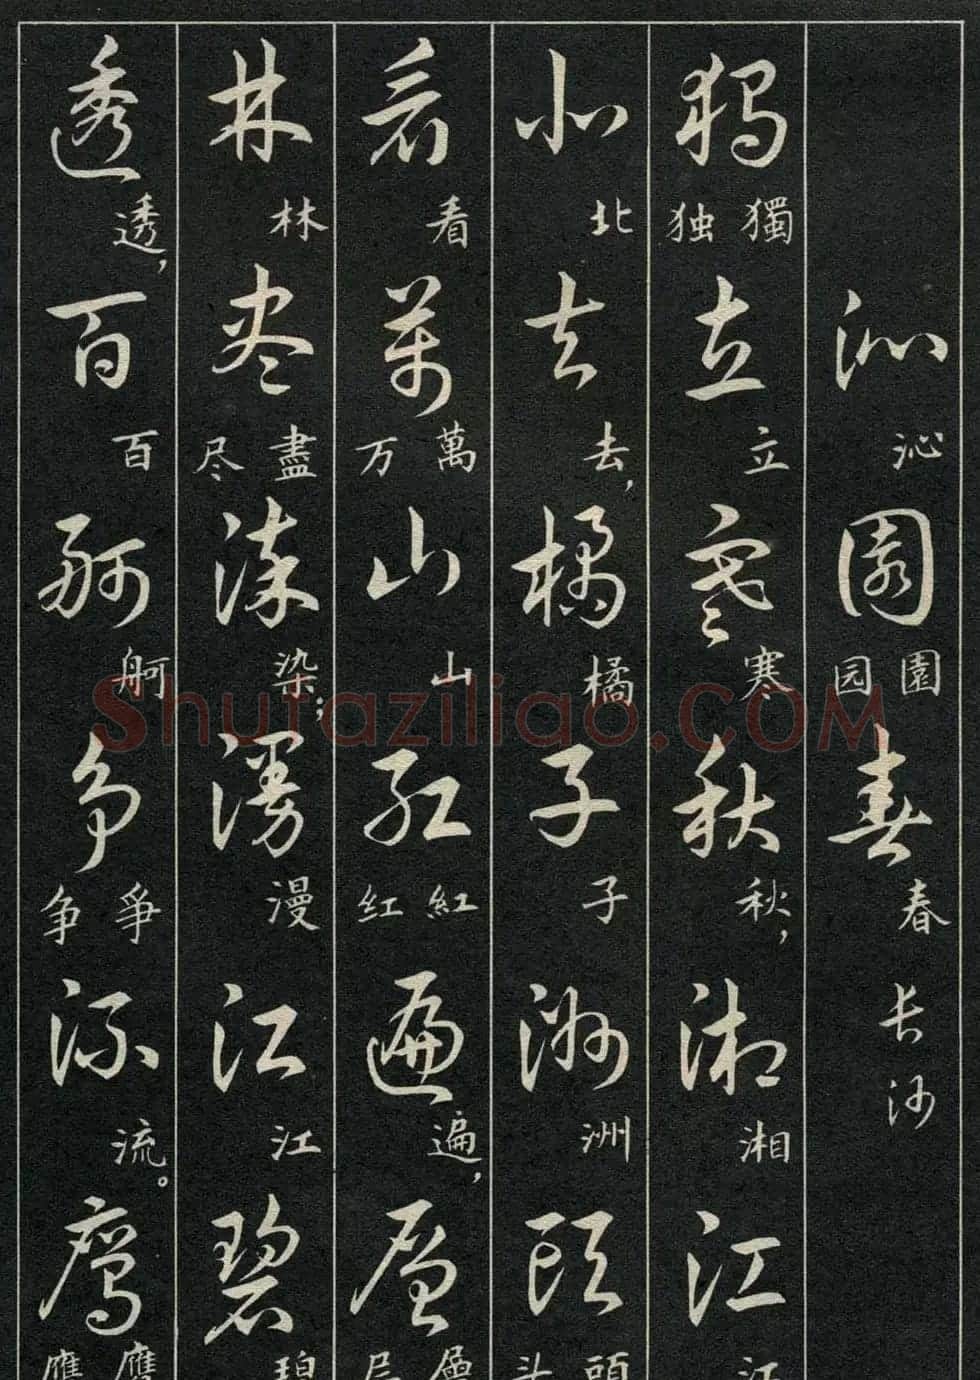 沁 沁 園 園 园 春 春 长沙
獨 獨 独 立 立 寒 寒 秋 秋， 湘 湘 江 江
北 北 去 去， 橘 橘 子 子 洲 洲 頭 頭 头
看 看 萬 萬 万 山 山 红 紅 红 遍 遍， 層 層 层
林 林 尽 盡 尽 染 染； 漫 漫 江 江 碧 碧
透 透， 百 百 舸 舸 争 爭 争 流 流。 鹰 鷹 鹰
Shufaziliao.COM